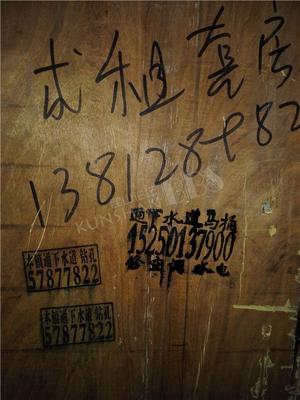 求租套房
138128482
通下水道马桶
15250137900
修 水电
本镇通下水道 钻孔
57877822
本镇通下水道 钻孔
57877822